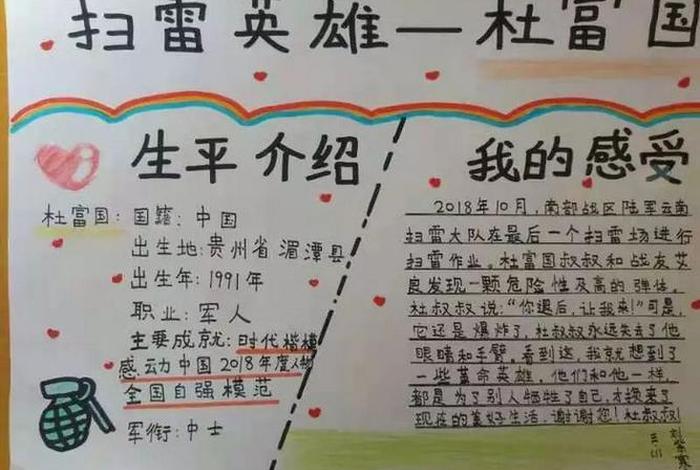 扫雷英雄—杜富国
生平介绍
杜富国：国籍：中国
出生地：贵州省湄潭县
出生年：1991年
职业：军人
主要成就：时代楷模
感动中国2018年度人物
全国自强模范
军衔：中士
我的感受
2018年10月，南部战区陆军云南
扫雷大队在最后一个扫雷场进行
扫雷作业。杜富国叔叔和战友艾
岩发现一颗危险性及高的弹体，
杜叔叔说：“你退后，让我来！”可是，
它还是爆炸了，杜叔叔永远失去了他
眼睛和手臂。看到这，我就想到了
一些革命英雄，他们和他一样，
都是为了别人牺牲了自己，才换来了
现在的美好生活，谢谢您！杜叔叔